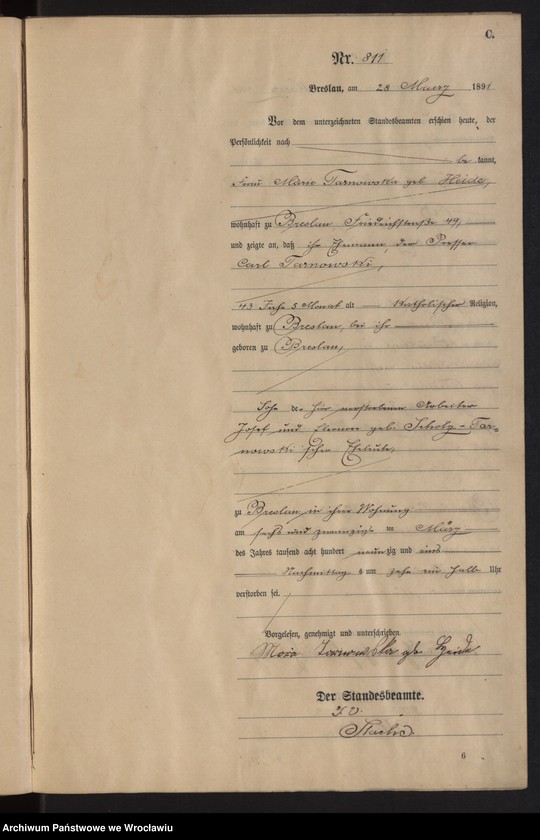 C.
Nr. 811
Breslau, am 28 Maerz 1891
Vor dem unterzeichneten Standesbeamten erschien heute, der
Persönlichkeit nach
be kannt,
Frau Marie Tarnowska geb Heide,
wohnhaft zu Breslau Friedrichstraße 49,
und zeigte an, daß ihr Ehemann, der Presser
Carl Tarnowski,
43 Jahr 5 Monat alt Katholischer Religion,
wohnhaft zu Breslau, bei ihr
geboren zu Breslau,
Sohn der hier verstorbenen Arbeiter
Josef und Eleonore geb. Scholz-Tar=
nowski'schen Eheleute,
zu Breslau in ihrer Wohnung
am sechs und zwanzigsten März
des Jahres tausend acht hundert neunzig und eins
Nachmittag s um zehn ein halb Uhr
verstorben sei.
Vorgelesen, genehmigt und unterschrieben
Tarnowska gb. Heide.
Der Standesbeamte.
I.V.
6
Archiwum Państwowe we Wrocławiu